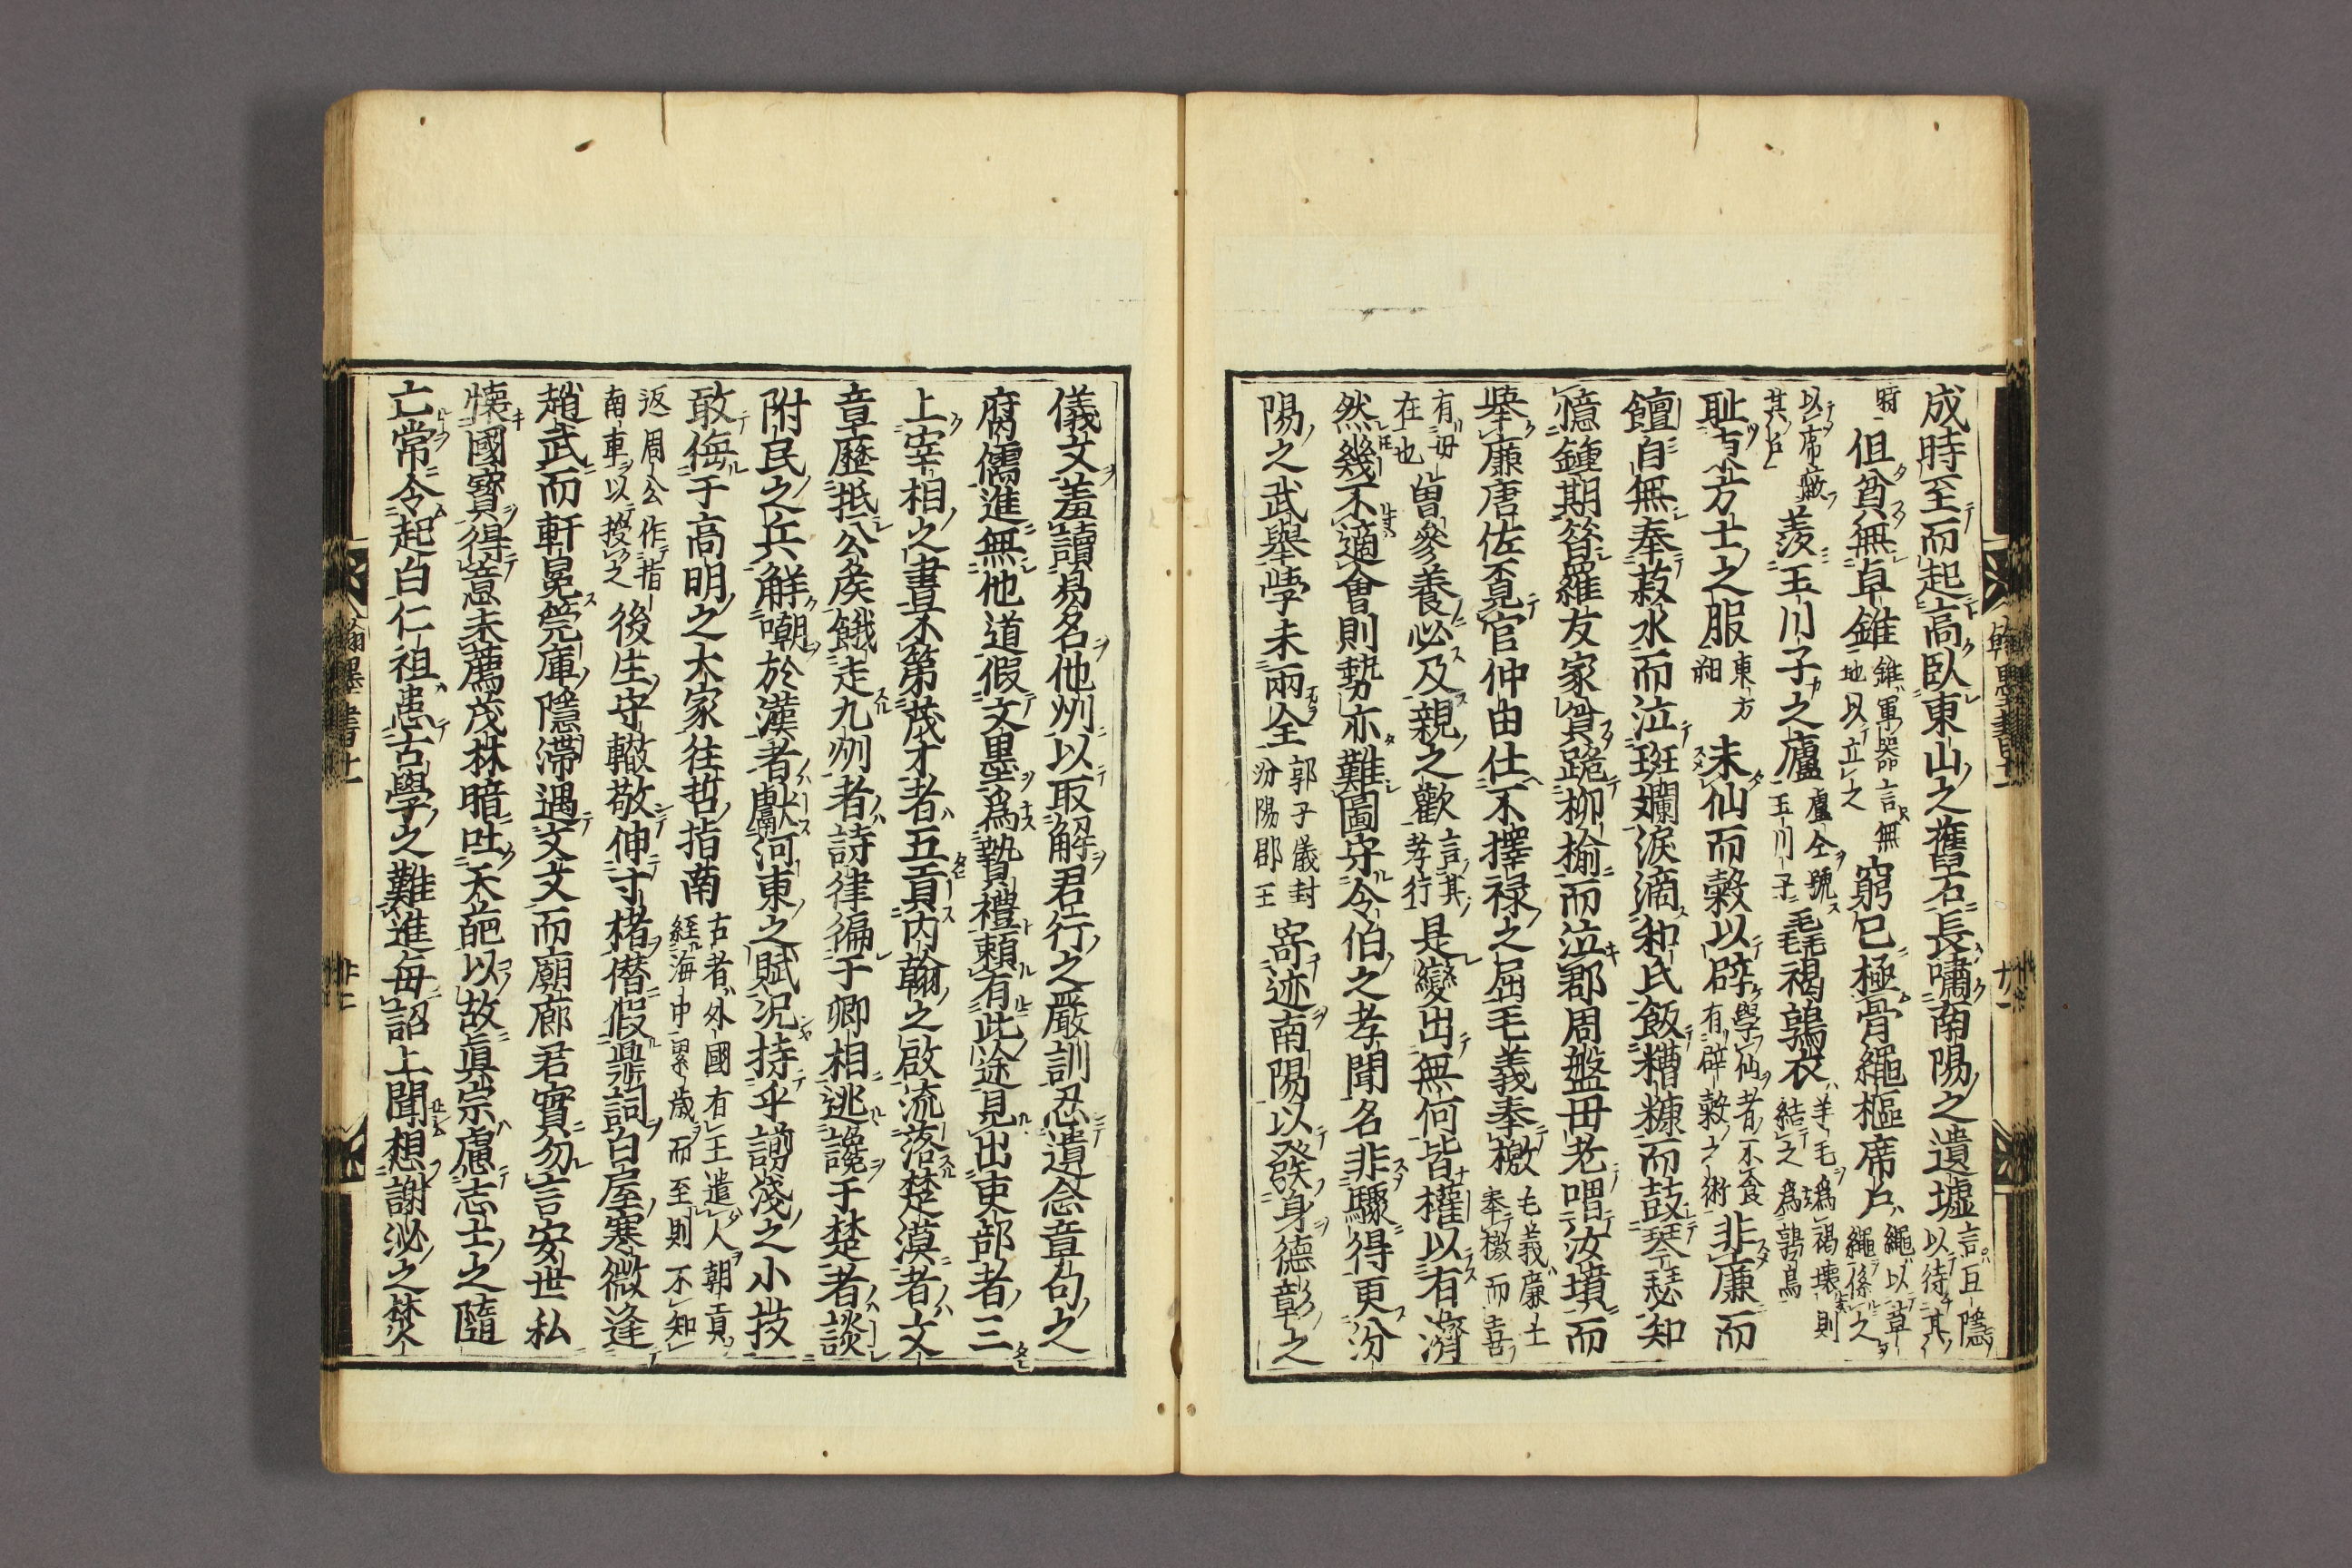 成時至而起高臥東山之舊石長嘯南陽之遺墟言且隱以待其
時但貧無卓錐錐軍器言無地以立之窮已極骨繩樞席戶繩以草繩係之
以席蔽其戶羨玉川子之廬盧仝號玉川子毛褐鶉衣羊毛爲褐壞則結之爲鶉鳥
耻方士之服東方朔未仙而穀以辟學仙者不食有辟穀之術非廉而
饘自無奉菽水而泣斑斕淚滴和氏飯糟糠而鼓琴瑟知
憶鍾期羅友家貧跪揄而泣郡周盤毋老嘈汝墳而
擧廉唐佐覓官仲由仕不擇禄之屈毛義奉檄毛義廉士奉檄而喜
有毋在也曽參養必及親之歡言其孝行是變出無何皆權以有濟
然幾不適會則勢亦難圖守令伯之孝聞名非驟得更汾
陽之武舉悽未兩全郭子儀封汾陽郡王寄迹南陽以發身德彰之
儀文羞讀易名他州以取解君行之嚴訓忍遺念章句之
腐儒進無他道假文墨爲贄禮頼有此途見出吏部者三
上宰相之書不第茂才者五頁内翰之啟流落楚漠者文
章歷抵公矦餓走九州者詩律徧于卿相逃讒于楚者談
附民之兵解嘲於漢者獻河東之賦況持乎謭淺之小技
敢侮于高明之大家往哲指南古者外國有王遣人朝貢經海中累歲而至則不知
返周公作指南車以授之後生守轍敬伸寸楮僣假詞白屋寒微逢
趙武而軒冕筦庫隱滯遇文文而廟廊君實勿言安世私
懐國寳得意未薦茂林暗吐天葩以故眞宗慮志士之隨
亡常令起白仁祖患古學之難進每詔上聞想謝泌之焚